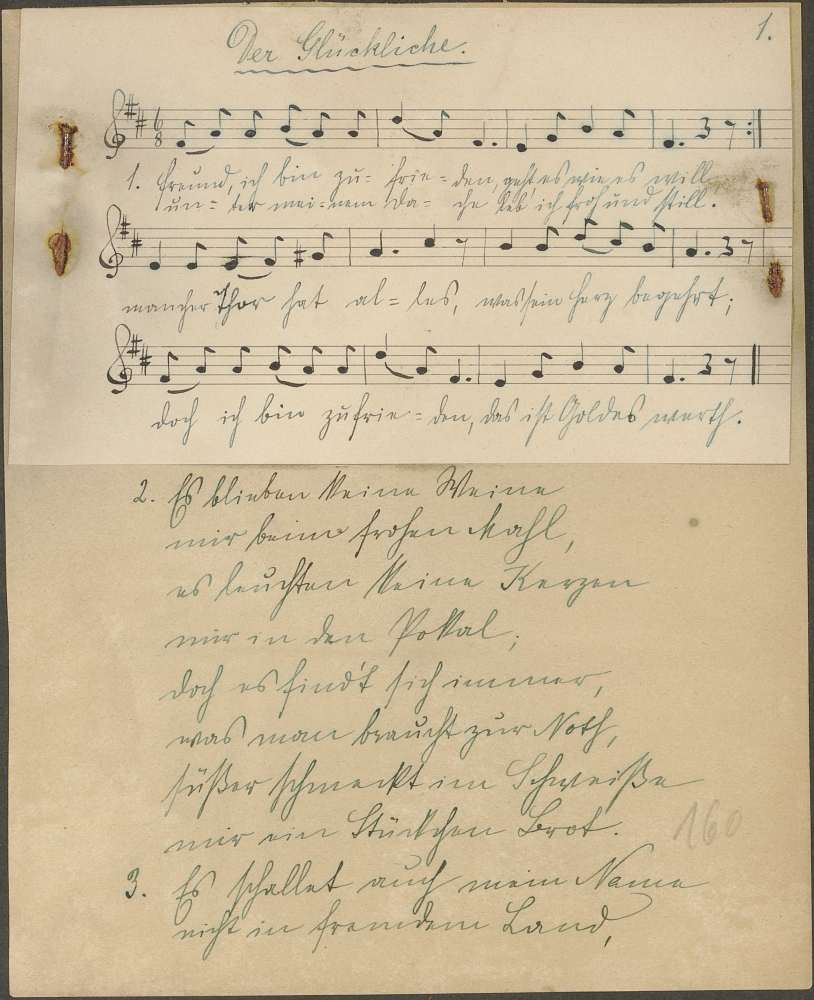 1.
Der Glückliche.
1. Freund, ich bin zu= frie= den, geht es wie es will,
un= ter mei= nem Da= che leb ich froh und still.
mancher Thor hat al= les, was sein Herz begehrt;
doch ich bin zufrie= den, das ist Goldes werth.
2. Es blinken keine Weine
mir beim frohen Mahl,
es leuchten keine Kerzen
mir in den Pokal;
doch es find't sich immer,
was man braucht zur Noth,
süßer schmeckt im Schweiße
mir ein Stückchen Brot.
160
3. Es schallet auch mein Name
nicht in fremdem Land,